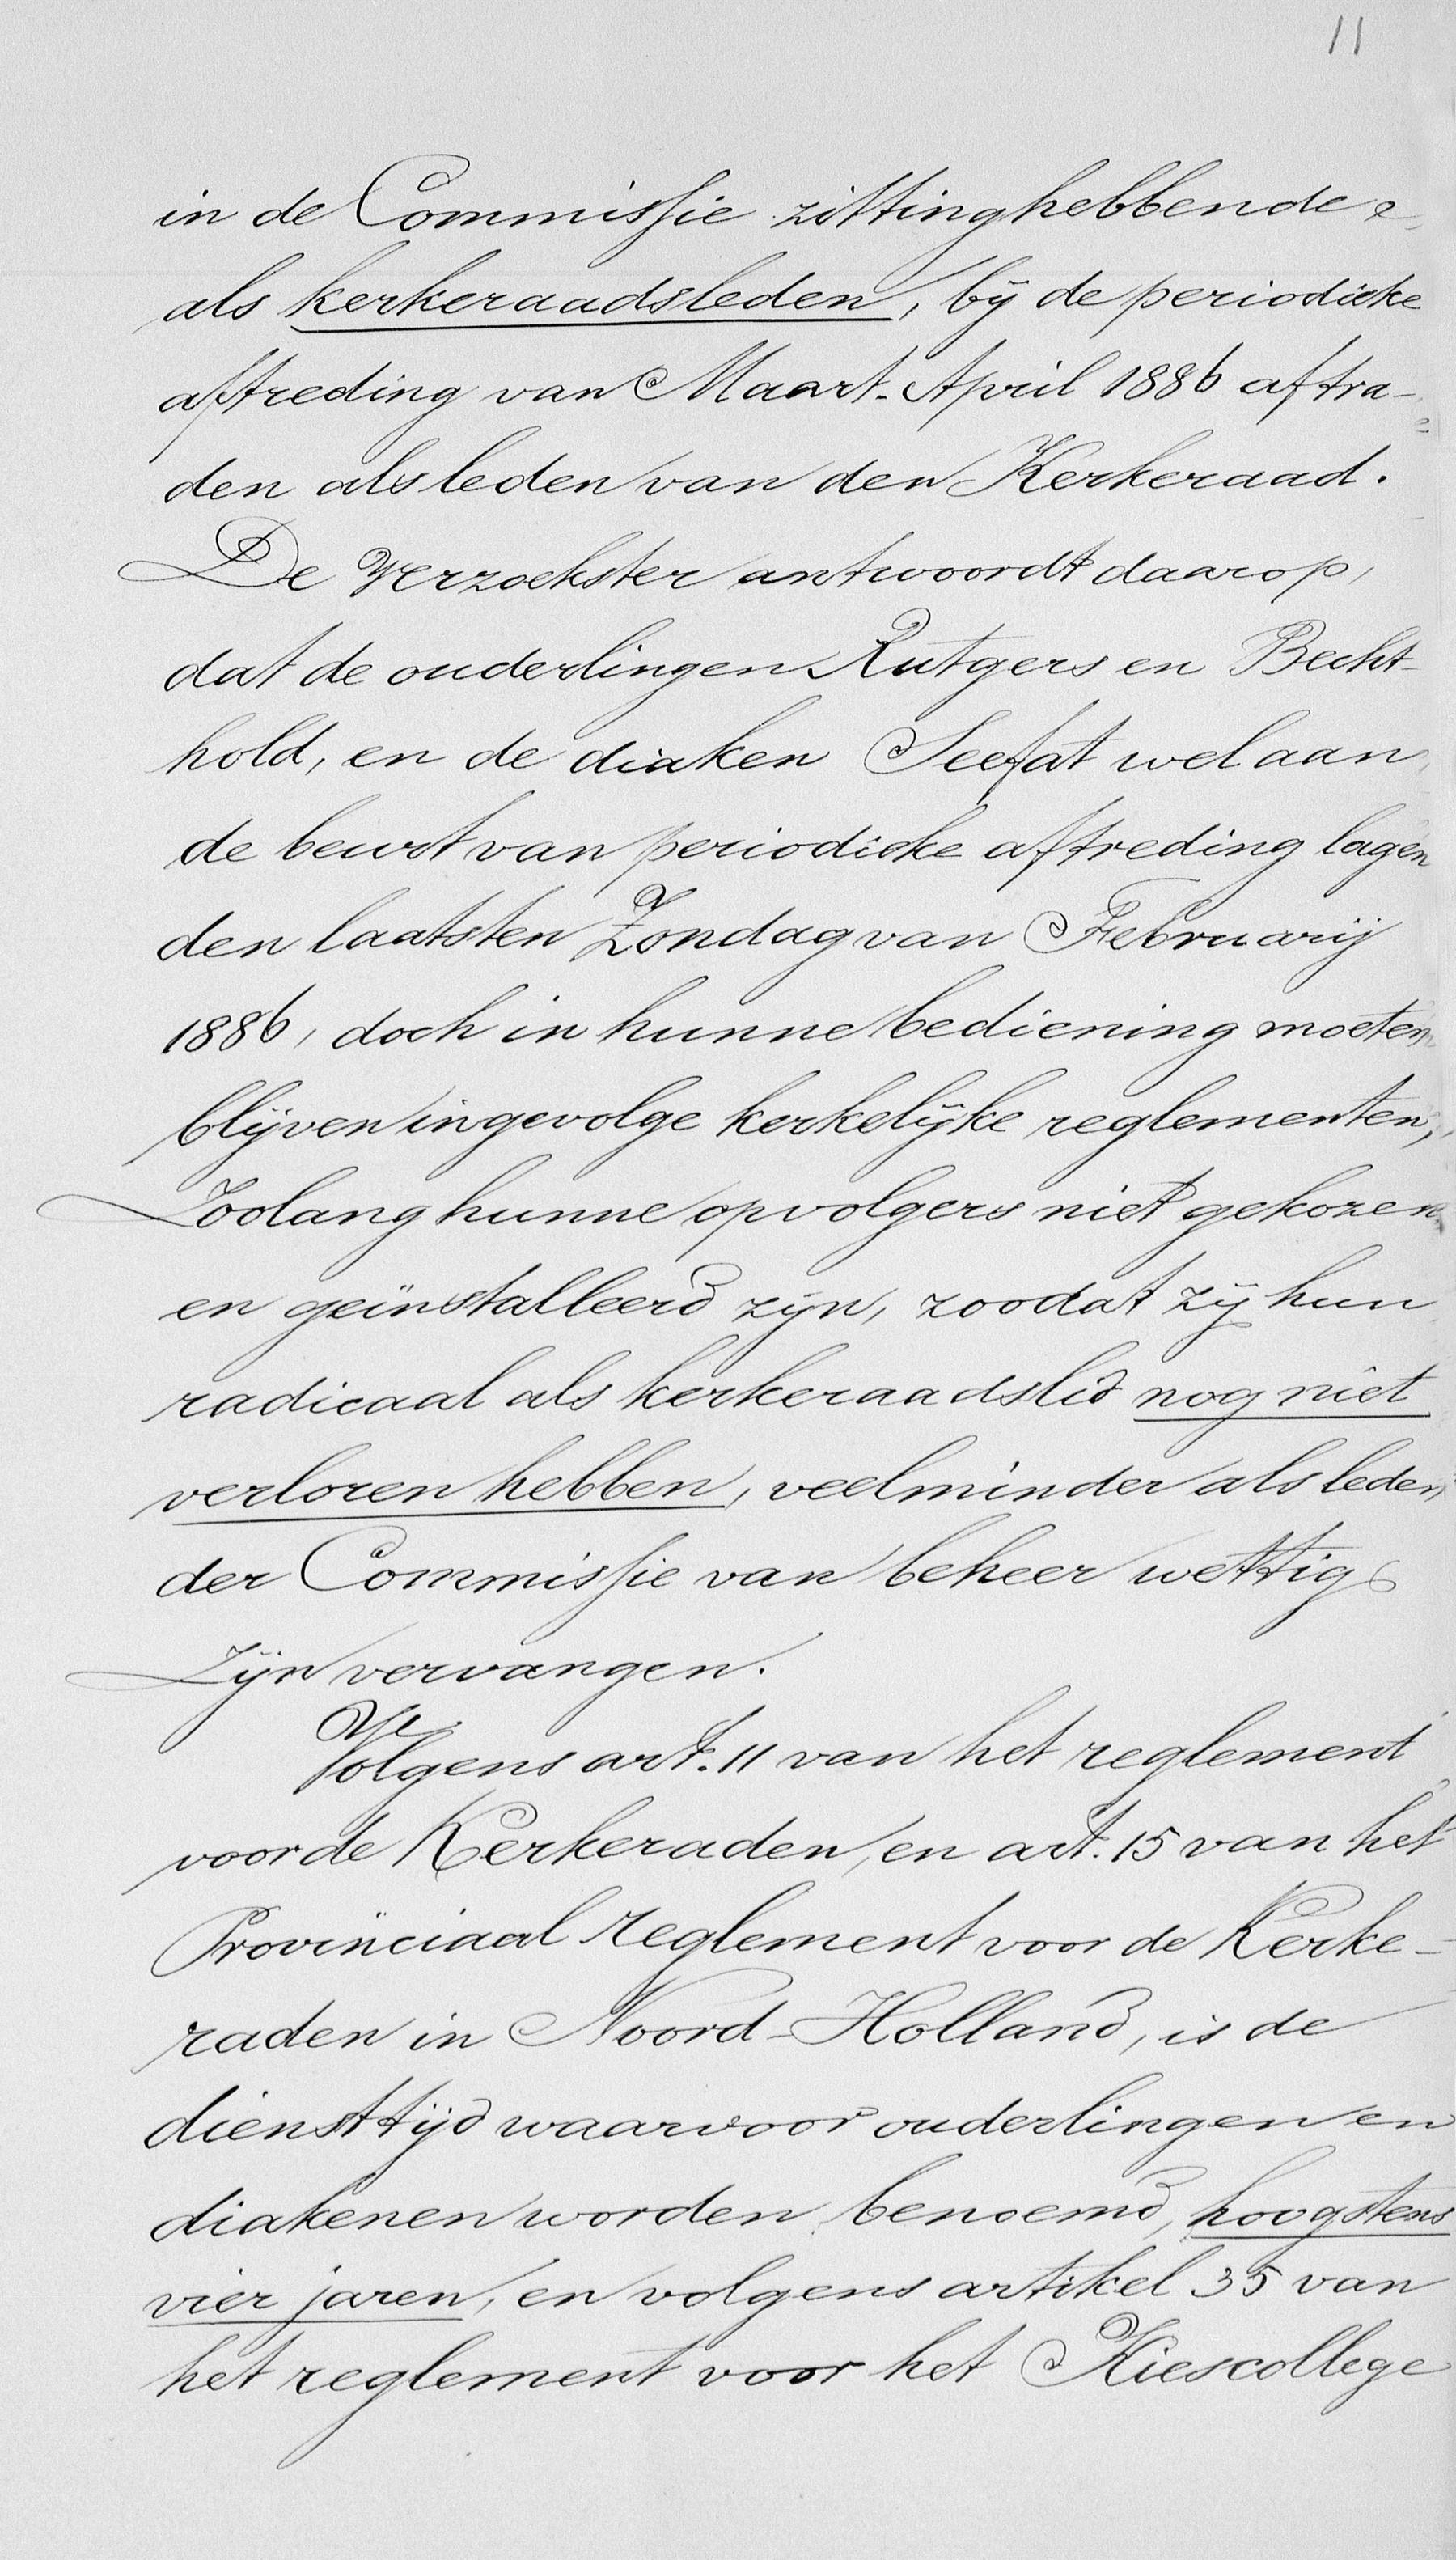 11
in de Commissie zitting hebbende
als kerkeraadsleden, bij de periodieke
aftreding van Maart-April 1886 aftra-
den als leden van den Kerkeraad.
De Verzoekster antwoordt daarop,
dat de ouderlingen Rutgers en Becht-
hold, en de diaken Seefat wel aan
de beurt van periodieke aftreding lagen
den laatsten Zondag van Februarij
1886, doch in hunne bediening moeten
blijven ingevolge kerkelijke reglementen,
Zoolang hunne opvolgers niet gekozen
en geïnstalleerd zijn, zoodat zij hun
radicaal als kerkeraadslid nog niet
verloren hebben, veelminder als leden
der Commissie van beheer wettig
zijn vervangen.
Volgens art. 11 van het reglement
voor de Kerkeraden, en art. 15 van het
Provinciaal reglement voor de Kerke-
raden in Noord-Holland, is de
diensttijd waarvoor ouderlingen en
diakenen worden benoemd, hoogstens
vier jaren, en volgens artikel 35 van
het reglement voor het Kiescollege